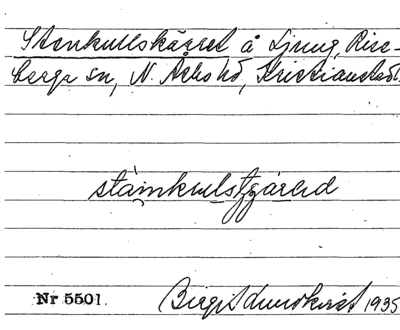 Stenkullskärret å Ljung, Rise-
berga sn, N. Åsbo hd, Kristianstads
stäinkulstjärəd
Nr 5501. Birgit Lundkvist 1935